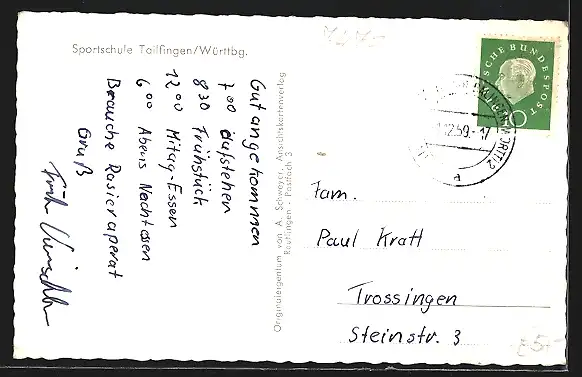 Sportschule Tailfingen/Württbg.
Gut angekommen
7⁰⁰ aufstehen
8³⁰ Frühstück
12⁰⁰ Mitag-Essen
6⁰⁰ Abens Nachtessen
Brauche Rasieraperat
Gruß
Originaleigentum von A. Schweyer, Ansichtskartenverlag
Reutlingen - Postfach 3
DEUTSCHE BUNDESPOST
10
.12.59.-17
Fam.
Paul Kratt
Trossingen
Steinstr. 3